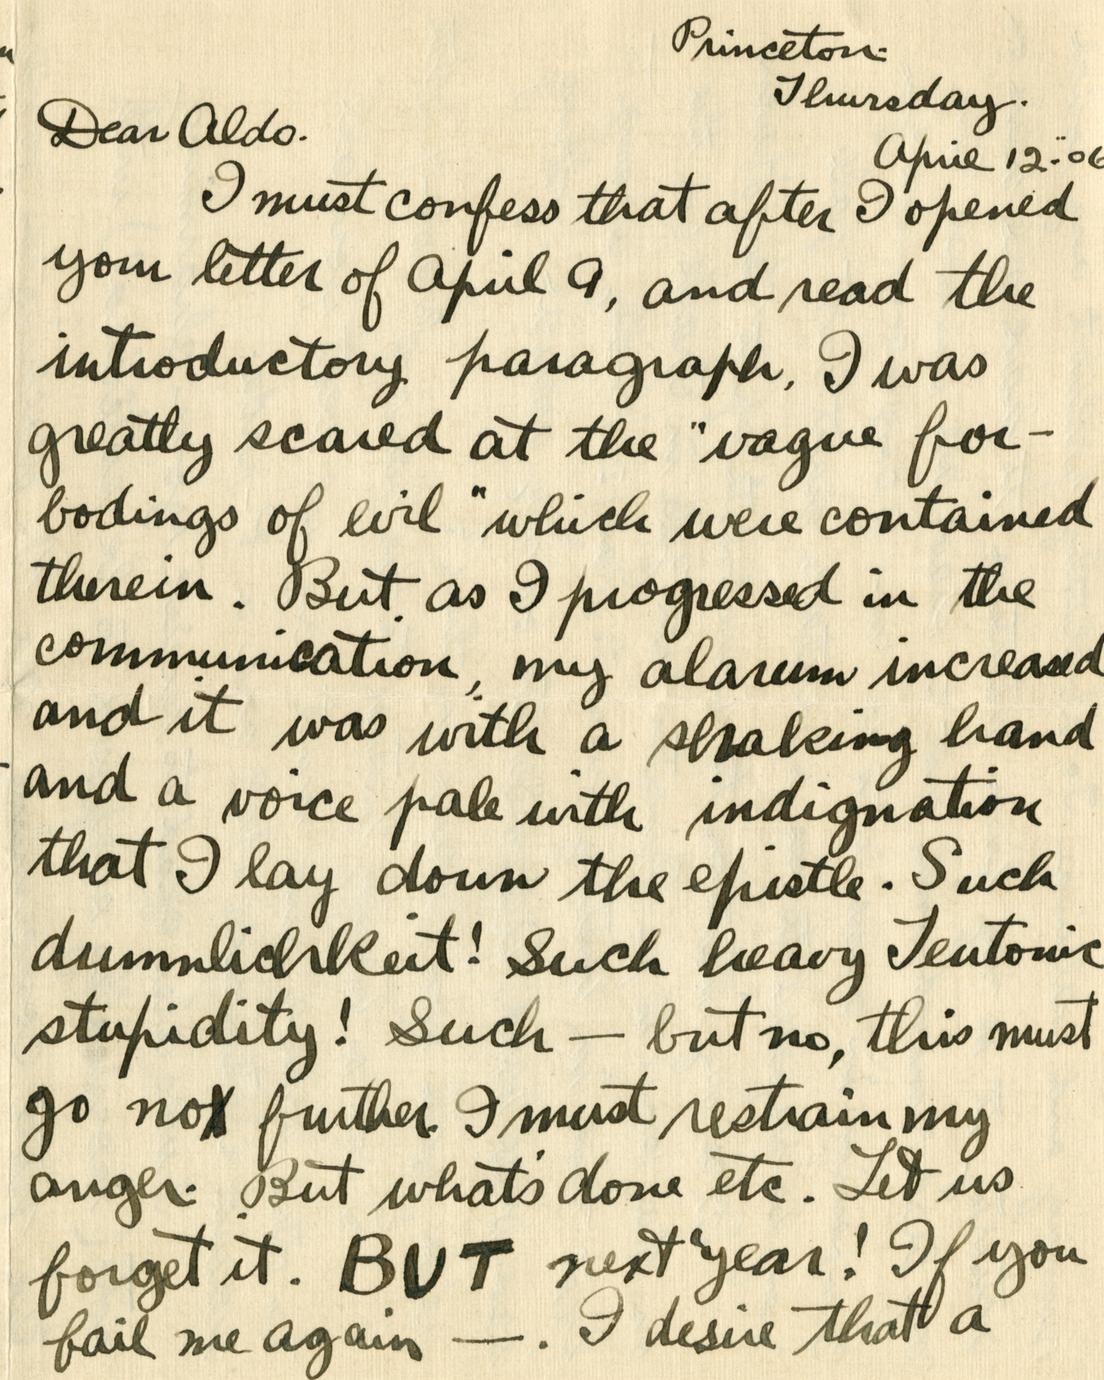 Princeton.
Thursday.
Dear Aldo.
April 12. 06
I must confess that after I opened
your letter of April 9, and read the
introductory paragraph, I was
greatly scared at the "vague for-
bodings of evil" which were contained
therein. But as I progressed in the
communication, my alarum increased
and it was with a shaking hand
and a voice pale with indignation
that I lay down the epistle. Such
dummlichkeit! Such heavy Teutonic
stupidity! Such — but no, this must
go no further. I must restrain my
anger. But what's done etc. Let us
forget it. BUT next year! If you
fail me again —. I desire that a